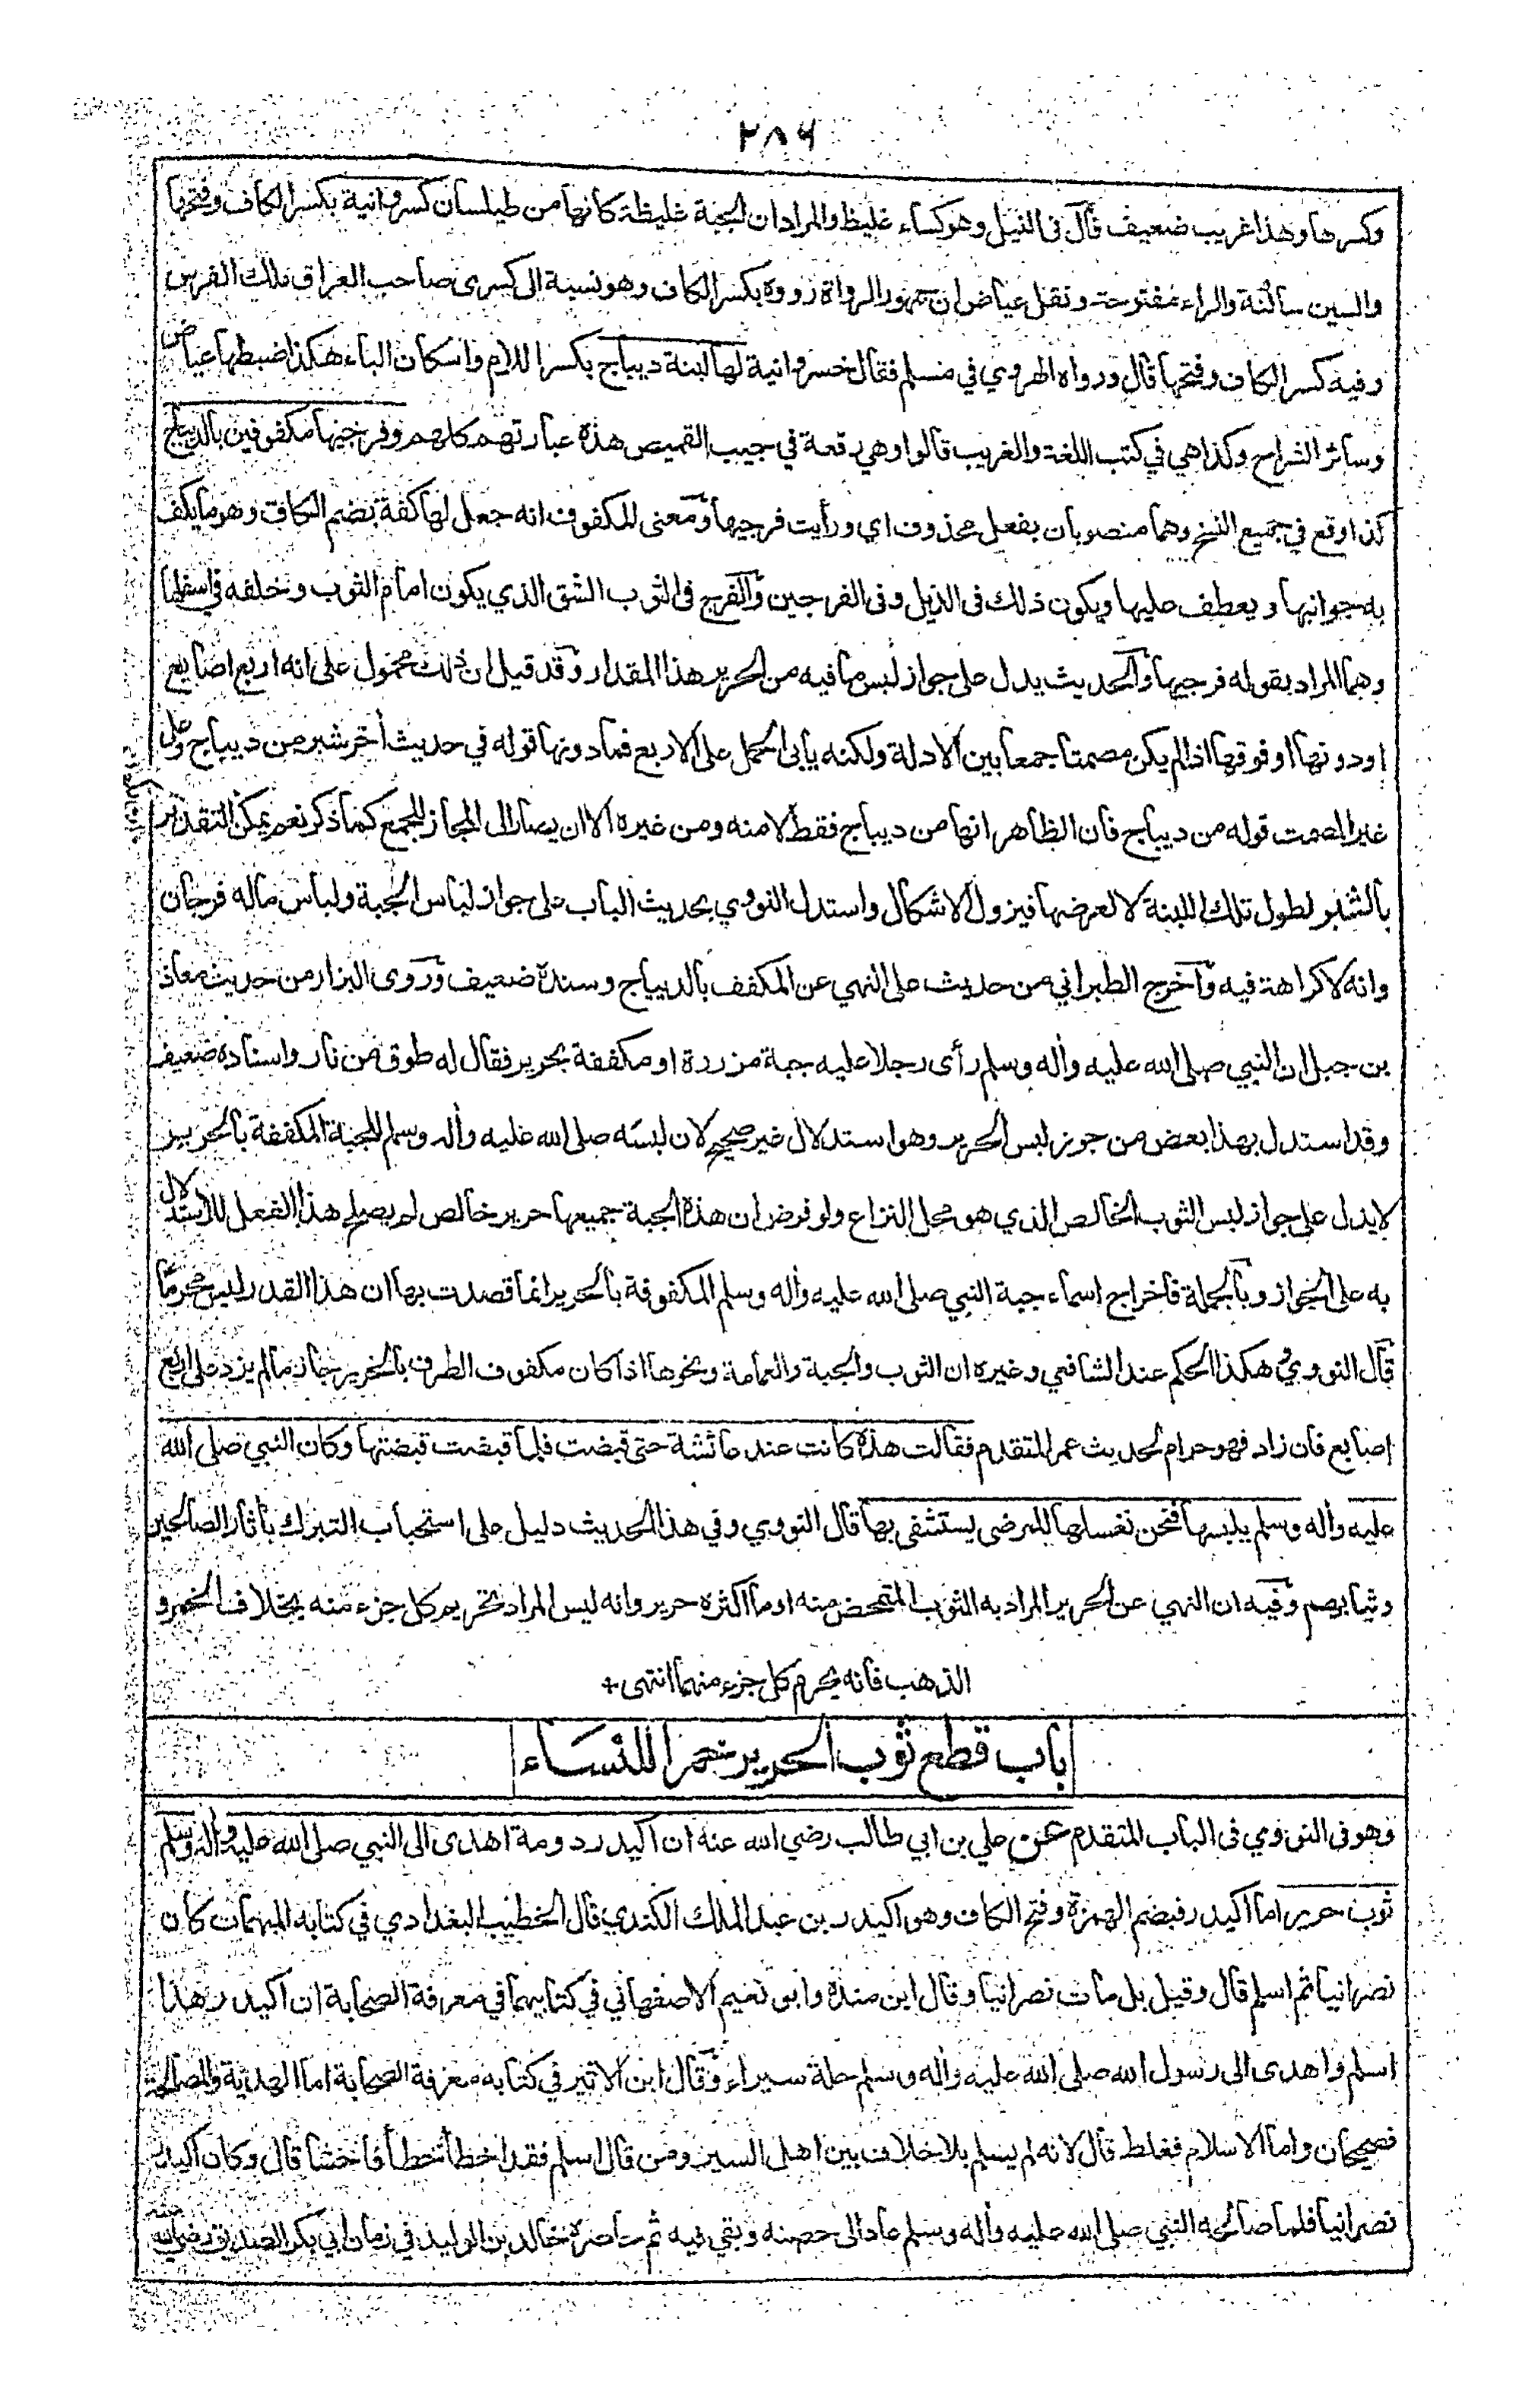 ٢٨٦
وكسرها وهذا غريب ضعيف قال فى النيل وهو كساء غليظ والمراد ان الجبة غليظة كانها من طيلسان كسروانية بكسر الكاف وفتحها
والسين ساكنة والراء مفتوحة ونقل عياض ان جمهور الرواة رووه بكسر الكاف وهو نسبة الى كسرى صاحب العراق ملك الفرس
وفيه كسر الكاف وفتحها قال ورواه الهروي في مسلم فقال خسروانية لها لبنة ديباج بكسر اللام واسكان الباء هكذا ضبطها عياض
وسائر الشراح وكذا هي في كتب اللغة والغريب قالوا وهي رقعة في جيب القميص هذه عبارتهم كلهم وفرجيها مكفوفين بالديباج
كذا وقع في جميع النسخ وهما منصوبان بفعل محذوف اي ورأيت فرجيها ومعنى المكفوف انه جعل لها كفة بضم الكاف وهو ما يكف
به جوانبها ويعطف عليها ويكون ذلك فى الذيل وفى الفرجين والفرج فى الثوب الشق الذي يكون امام الثوب وخلفه في اسفلها
وهما المراد بقوله فرجيها والحديث يدل على جواز لبس ما فيه من الحرير هذا المقدار وقد قيل ان ذلك محمول على انه اربع اصابع
او دونها او فوقها اذا لم يكن مصمتا جمعا بين الادلة ولكنه يابى الحمل على الاربع فما دونها قوله في حديث أخر شبر من ديباج وعلى
غير المصمت قوله من ديباج فان الظاهر انها من ديباج فقط لا منه ومن غيره الا ان يصار الى المجاز للجمع كما ذكر نعم يمكن التقدير
بالشبر لطول تلك اللبنة لا لعرضها فيزول الاشكال واستدل النووي بحديث الباب على جواز لباس الجبة ولباس ماله فرجان
وانه لا كراهة فيه وأخرج الطبراني من حديث على النهي عن المكفف بالديباج وسنده ضعيف وروى البزار من حديث معاذ
بن جبل ان النبي صلى الله عليه وأله وسلم رأى رجلا عليه جبة مزررة او مكففة بحرير فقال له طوق من نار واسناده ضعيف
وقد استدل بهذا بعض من جوز لبس الحرير وهو استدلال غير صحيح لان لبسه صلى الله عليه وأله وسلم للجبة المكففة بالحرير
لا يدل على جواز لبس الثوب الخالص الذي هو محل النزاع ولو فرض ان هذه الجبة جميعها حرير خالص لم يصلح هذا الفعل للاستدلال
به على الجواز وبالجملة فاخراج اسماء جبة النبي صلى الله عليه وأله وسلم المكفوفة بالحرير انما قصدت بها ان هذا القدر ليس محرما
قال النووي هكذا الحكم عند الشافعي وغيره ان الثوب والجبة والعمامة ونحوها اذا كان مكفوف الطرف بالحرير جاز مالم يزد على اربع
اصابع فان زاد فهو حرام لحديث عمر المتقدم فقالت هذه كانت عند عائشة حتى قبضت فلما قبضت قبضتها وكان النبي صلى الله
عليه وأله وسلم يلبسها فنحن نغسلها للمرضى يستشفى بها قال النووي وفي هذا الحديث دليل على استحباب التبرك بأثار الصالحين
وثيابهم وفيه ان النهي عن الحرير المراد به الثوب المتمحض منه او ما اكثره حرير وانه ليس المراد تحريم كل جزء منه بخلاف الخمر و
الذهب فانه يحرم كل جزء منهما انتهى +
باب قطع ثوب الحرير خمرا للنساء
وهو فى النووي فى الباب المتقدم عن علي بن ابي طالب رضي الله عنه ان اكيدر دومة اهدى الى النبي صلى الله عليه وأله وسلم
ثوب حرير اما اكيدر فبضم الهمزة وفتح الكاف وهو اكيدر بن عبد الملك الكندي قال الخطيب البغدادي في كتابه المبهمات كان
نصرانيا ثم اسلم قال وقيل بل مات نصرانيا وقال ابن مندة وابو نعيم الاصفهاني في كتابيهما في معرفة الصحابة ان اكيدر هذا
اسلم واهدى الى رسول الله صلى الله عليه وأله وسلم حلة سيراء وقال ابن الاثير في كتابه معرفة الصحابة اما الهدية والمصالحة
فصحيحان واما الاسلام فغلط قال لانه لم يسلم بلا خلاف بين اهل السير ومن قال اسلم فقد اخطأ خطأ فاحشا قال وكان اكيدر
نصرانيا فلما صالحه النبي صلى الله عليه وأله وسلم عاد الى حصنه وبقي فيه ثم حاصره خالد بن الوليد في زمان ابي بكر الصديق رضي الله عنه